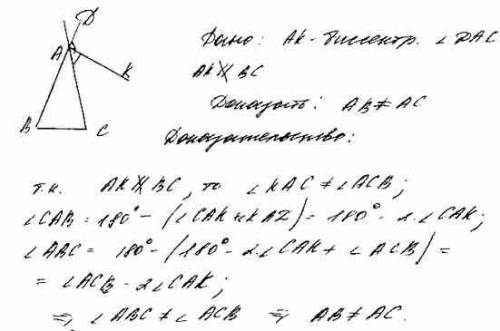 D
A
K
B
C
Дано: AK - биссектр. ∠DAC
AK ∦ BC
Доказать: AB ≠ AC
Доказательство:
т.к. AK ∦ BC, то ∠KAC ≠ ∠ACB;
∠CAB = 180° - (∠CAK + KAZ) = 180° - 2·∠CAK;
∠ABC = 180° - (180° - 2∠CAK + ∠ACB) =
= ∠ACB - 2∠CAK;
⇒ ∠ABC ≠ ∠ACB ⇒ AB ≠ AC.